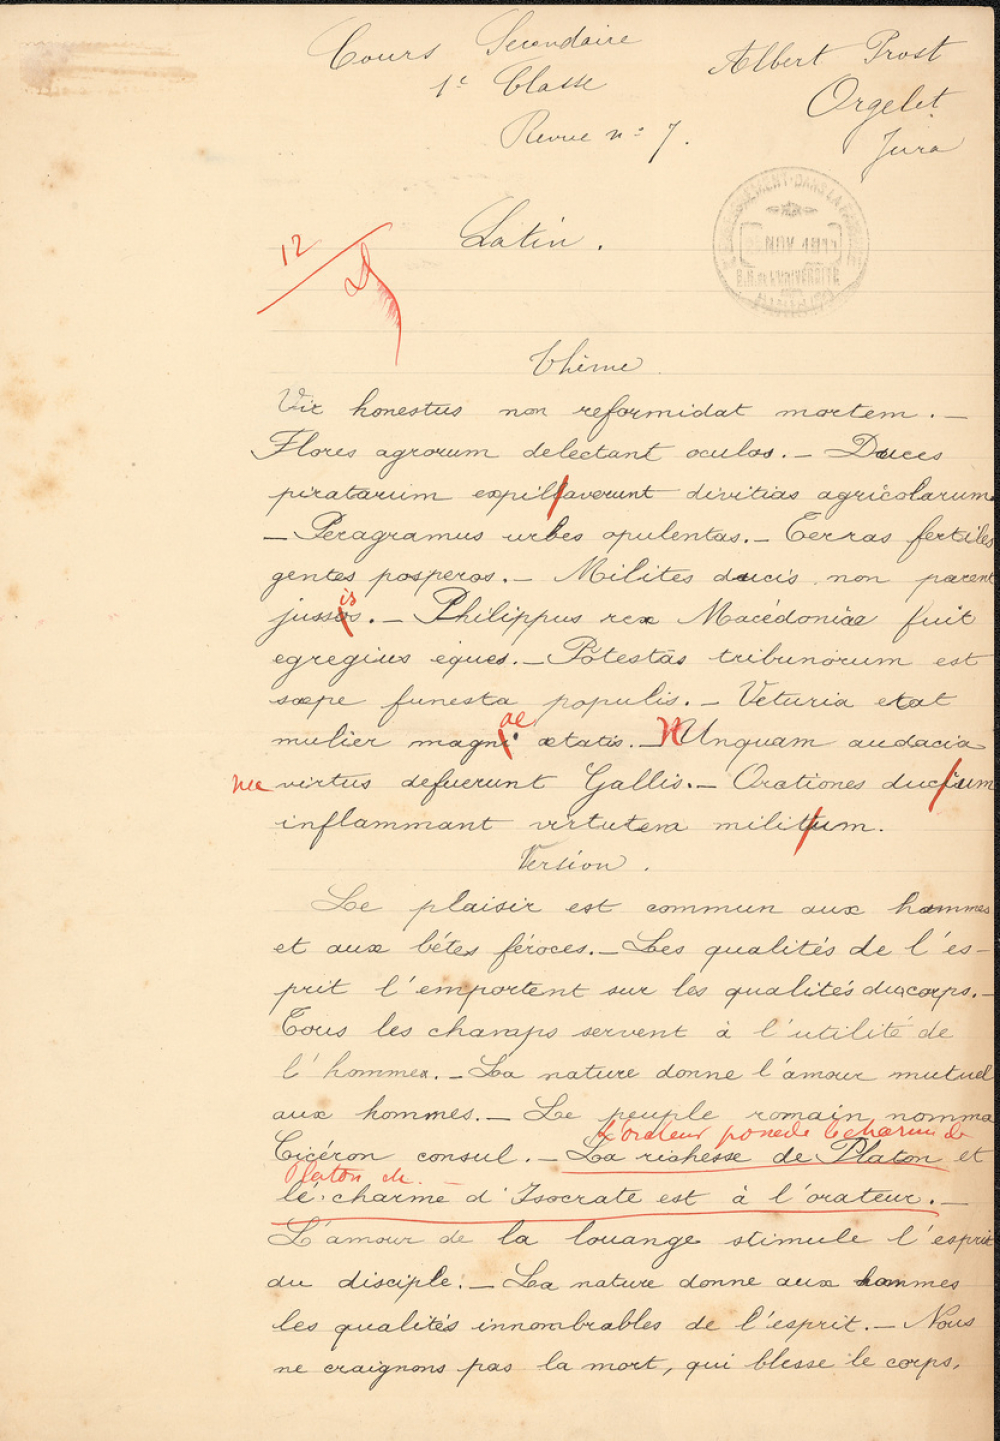 Cours Secondaire
1e Classe
Revue n° 7.
Albert Prost
Orgelet
Jura
Latin.
12
Thème.
Vir honestus non reformidat mortem. —
Flores agrorum delectant oculos. — Duces
piratarum expillaverunt divitias agricolarum
— Peragramus urbes opulentas. — Terras fertiles
gentes posperos. — Milites ducis non parent
is
jussos. — Philippus rex Macédoniae fuit
egregius eques. — Potestas tribunorum est
sæpe funesta populis. — Veturia erat
ae
mulier magni ætatis. — NUnquam audacia
nec virtus defuerunt Gallis. — Orationes ducium
inflammant virtutem militum.
Version.
Le plaisir est commun aux hommes
et aux bêtes féroces. — Les qualités de l'es-
prit l'emportent sur les qualités du corps. —
Tous les champs servent à l'utilité de
l'homme. — La nature donne l'amour mutuel
aux hommes. — Le peuple romain nomma
L'orateur possède le charme de
Cicéron consul. — La richesse de Platon et
Platon
le charme d'Isocrate est à l'orateur. —
L'amour de la louange stimule l'esprit
du disciple. — La nature donne aux hommes
les qualités innombrables de l'esprit. — Nous
ne craignons pas la mort, qui blesse le corps,